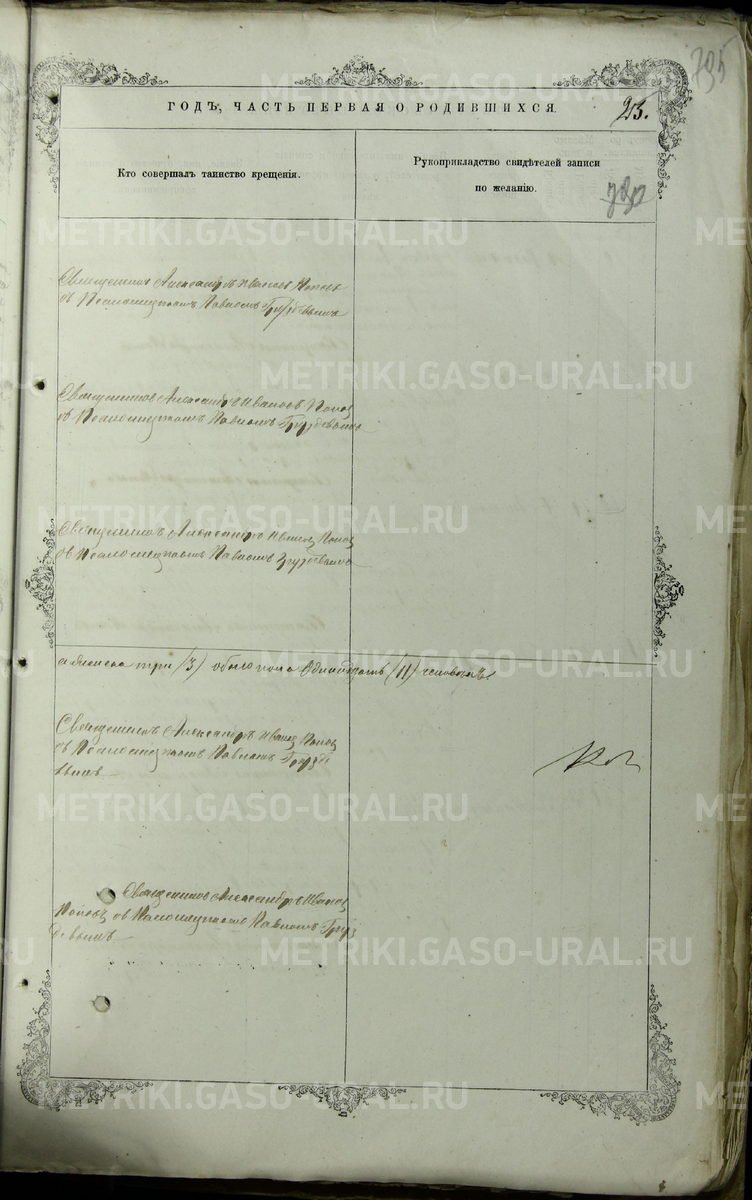 ГОДЪ, ЧАСТЬ ПЕРВАЯ О РОДИВШИХСЯ.
25.
Кто совершалъ таинство крещенія.
Рукоприкладство свидѣтелей записи
по желанію.
Священникъ Александръ Ивановъ Поповъ
съ Псаломщикомъ Павломъ
Священникъ Александръ Ивановъ Попов
съ Псаломщикомъ Павломъ
Священникъ Александръ Иванов Попов
съ Псаломщикомъ Павломъ
а женска три (3) обоего пола одинадцать (11) человекъ
Священникъ Александръ Иванов Попов
съ Псаломщикомъ Павломъ
Священникъ Александръ Иванов
Поповъ съ Псаломщикомъ Павломъ
METRIKI.GASO-URAL.RU